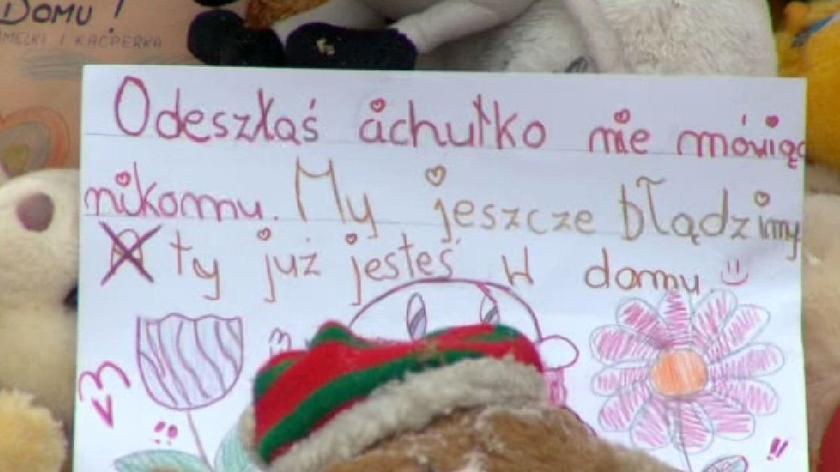 Domu!
MELKI I KACPERKA
Odeszłaś cichutko nie mówiąc
nikomu. My jeszcze błądzimy
A ty już jesteś w domu.